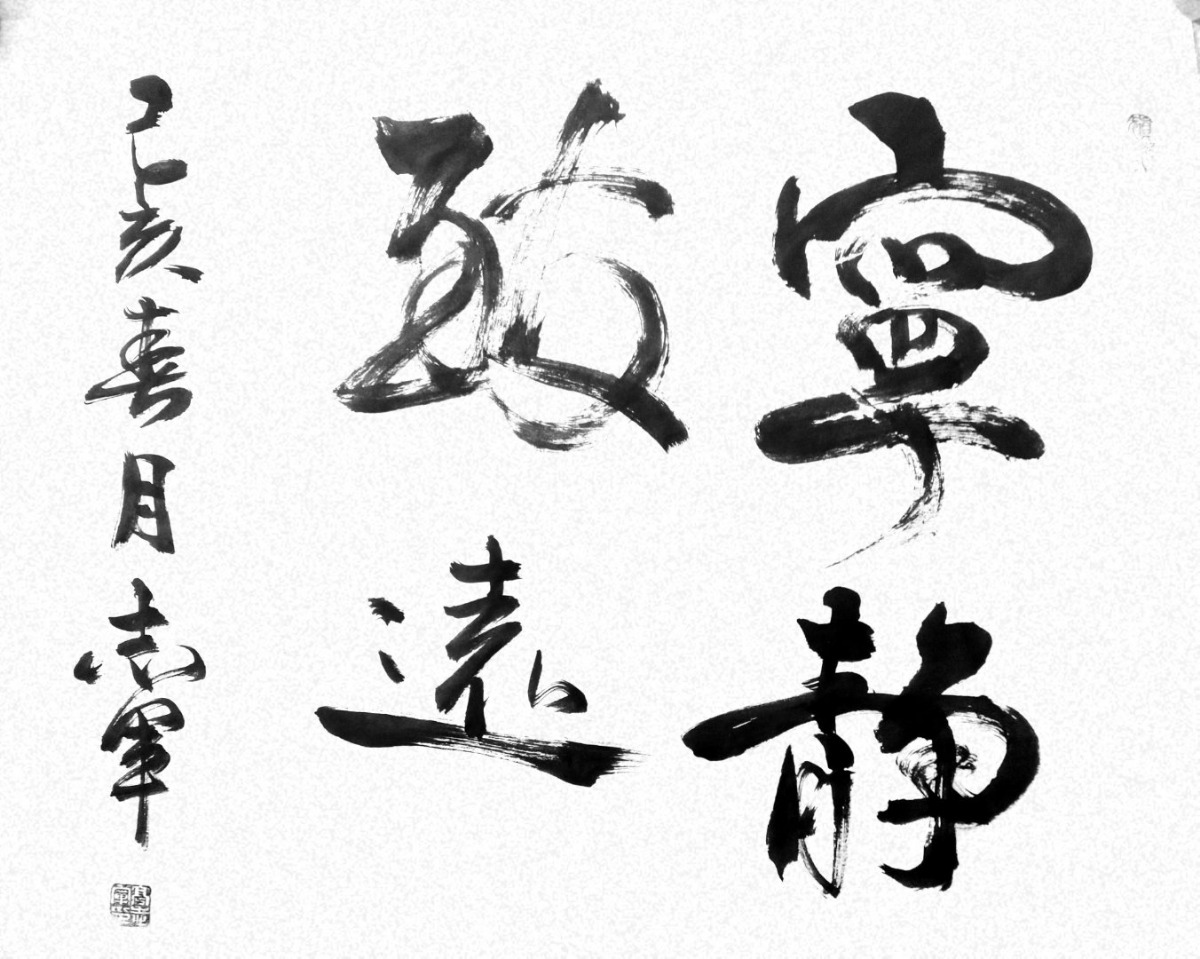 寧靜
致遠
己亥春月志軍